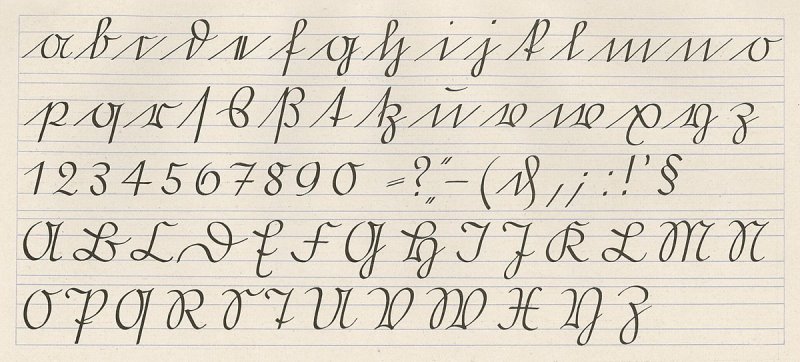 a b c d e f g h i j k l m n o
p q r ſ s ß t tz ŭ v w x y z
1 2 3 4 5 6 7 8 9 0 = ? „ “ – ( & , ; : ! ' §
A B C D E F G H I J K L M N
O P Q R S T U V W X Y Z